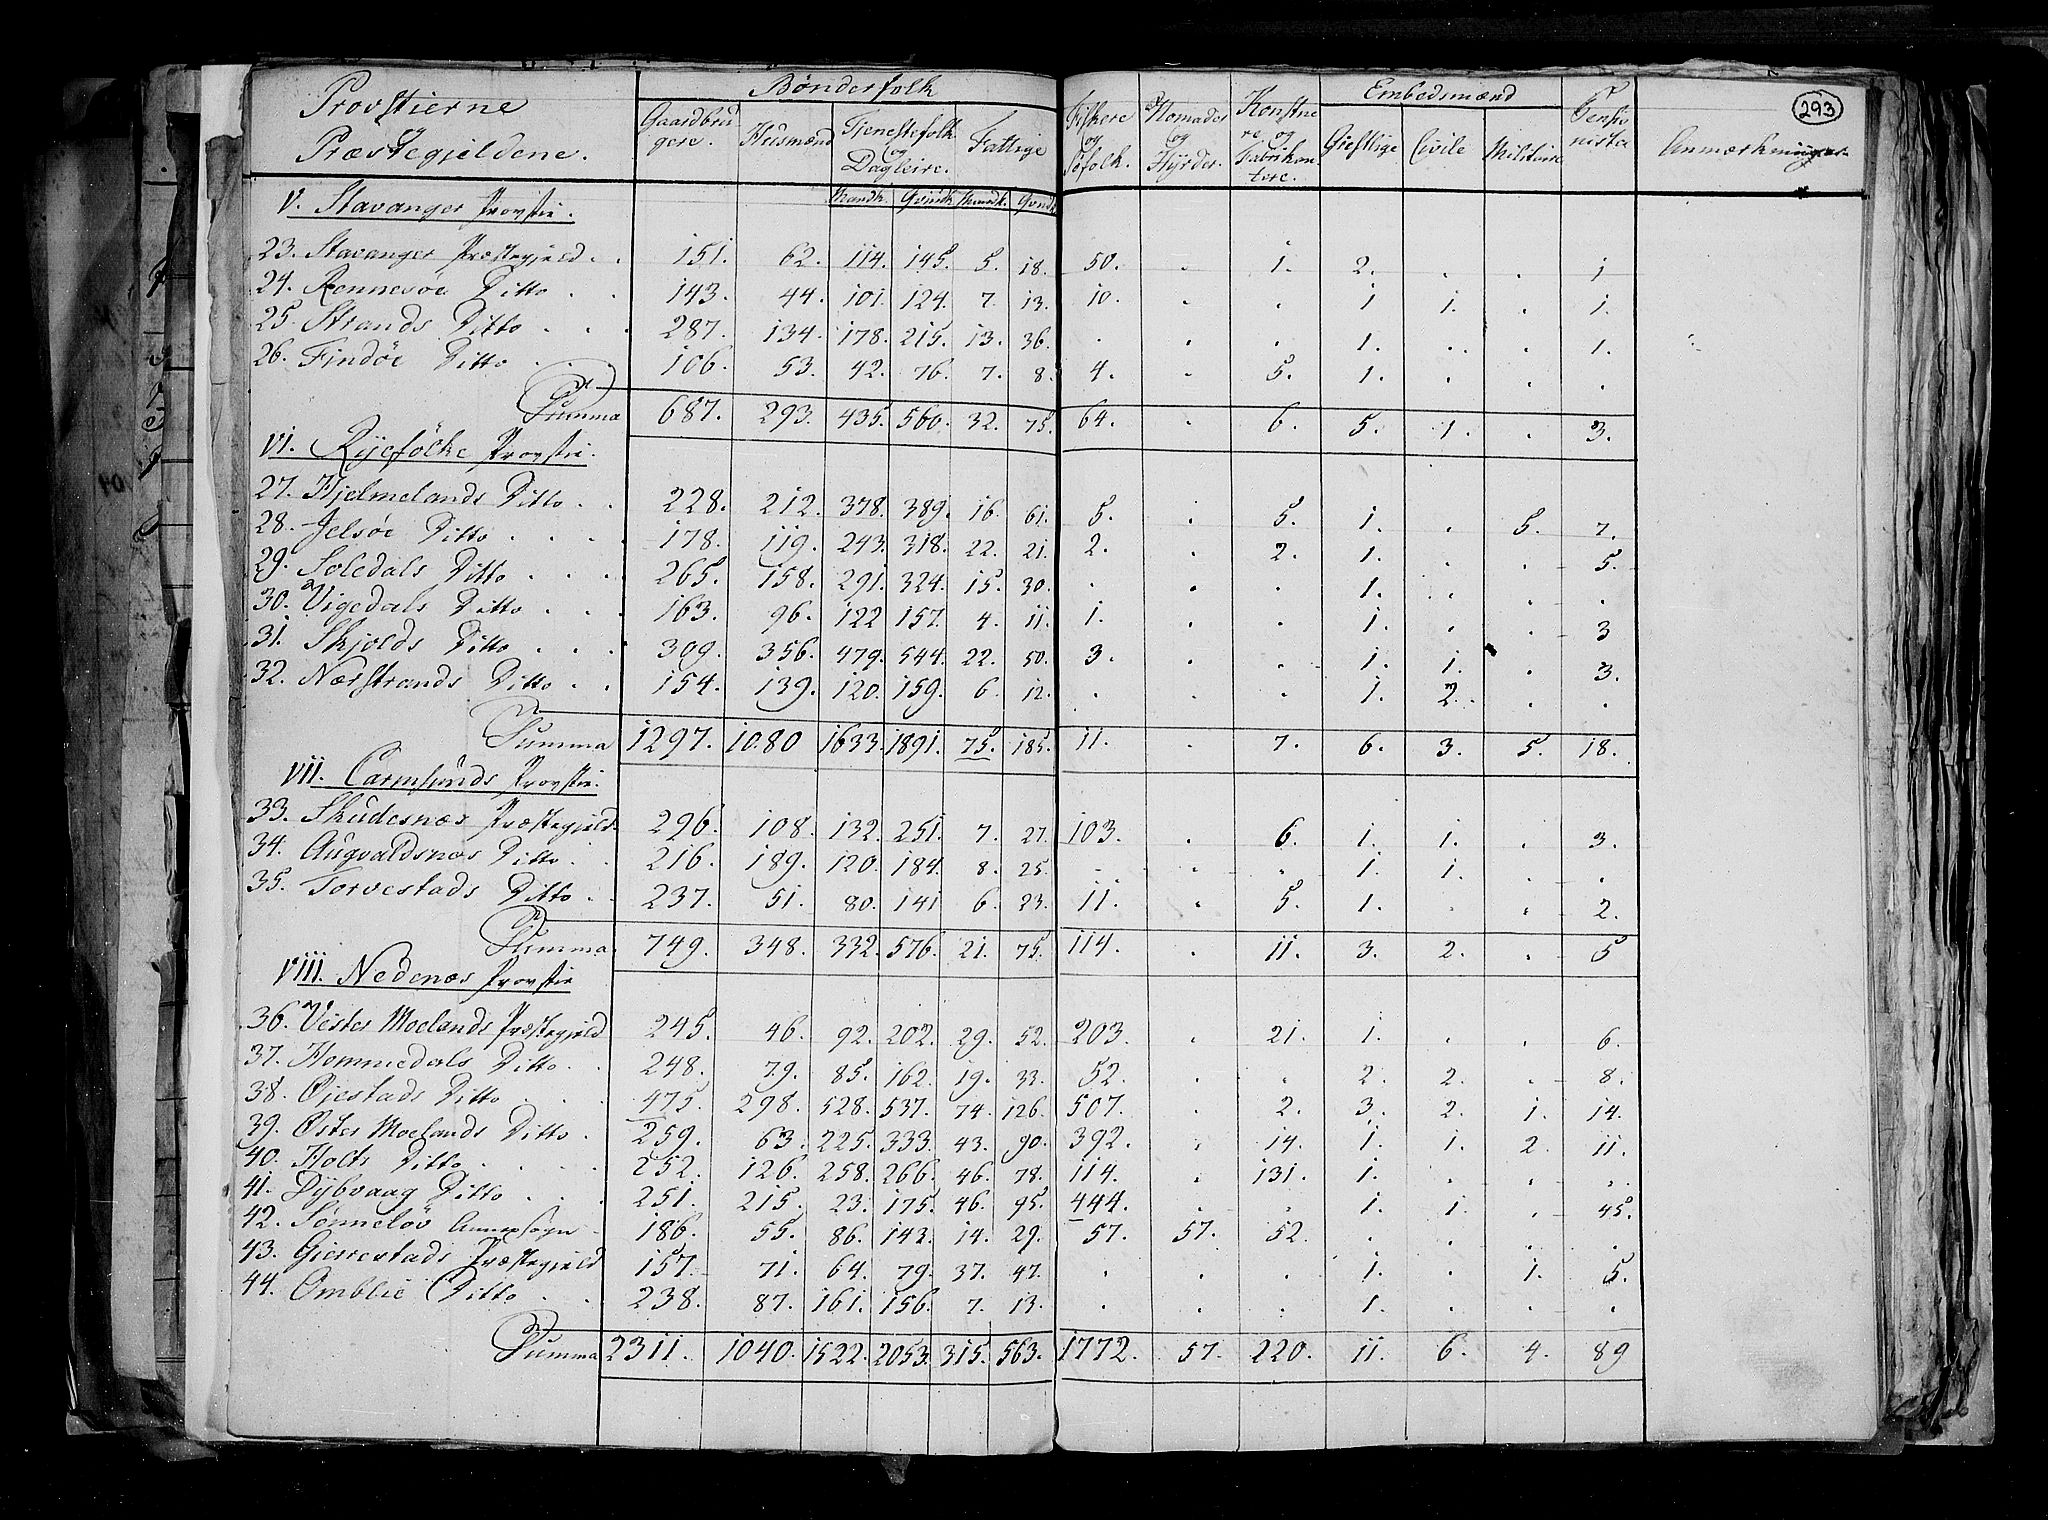 293
Provstierne og Præstegjeldene. | Bønderfolk | Embedsmænd
Gaardbrugere. | Huusmænd | Tjenestefolk og Dagleiere. | Fattige | Fiskere og Søfolk. | Nomader og Hyrder. | Konstnere og Fabrikantere. | Gieistlige | Civile | Militaire | Pensionister | Anmærkninger
Mandk. | Qvindk. | Mandk. | Qvindk.
V. Stavanger Provstie.
23. Stavanger Præstegjeld . . 151. 62. 114. 145. 5. 18. 50. . 1. 2. . . 1
24. Rennesøe Ditto . . 143. 44. 101. 124. 7. 13. 10. . . 1 1. . 1.
25. Strands Ditto . . . 287. 134. 178. 215. 13. 36. . . . 1. . . 1.
26. Findøe Ditto . . 106. 53. 42. 76. 7. 8. 4. . 5. 1. . . .
Summa 687. 293. 435. 560. 32. 75. 64. . 6. 5. 1. . 3.
VI. Ryefölke Provstie.
27. Hjelmelands Ditto . . 228. 212. 378. 389. 16. 61. 5. . 5. 1. . 5. 7.
28. Jelsøe Ditto . . . . 178. 119. 243. 318. 22. 21. 2. . 2. 1. . . 5.
29. Soledals Ditto . . . 265. 158. 291. 324. 15. 30. . . . 1. . . .
30. Vigedals Ditto . . . 163. 96. 122 157. 4. 11. 1. . . 1. . . 3
31. Skjolds Ditto . . . 309. 356. 479. 544. 22. 50. 3. . . 1. 1. . 3.
32. Nærstrands Ditto . . 154. 139. 120. 159. 6. 12. . . . 1. 2. . .
Summa 1297. 1080 1633. 1891. 75. 185. 11. . 7. 6. 3. 5. 18.
VII. Carmsunds Provstie.
33. Skudesnæs Præstegjeld. 296. 108. 132. 251. 7. 27. 103. . 6. 1. 1. . 3.
34. Augvaldsnæs Ditto . . 216. 189. 120. 184. 8. 25. . . . 1. 1. . .
35. Torvestads Ditto . . 237. 51. 80. 141 6. 23. 11. . 5. 1. . . 2.
Summa. 749. 348. 332. 576. 21. 75. 114. . 11. 3. 2. . 5
VIII. Nedenæs Provstie
36. Vester Moelands Præstegjeld 245. 46. 92. 202. 29. 52. 203. . 21. 1. . . 6.
37. Hommedals Ditto . . 248. 79. 85. 162. 19. 33. 52. . . 2. 2. . 8.
38. Øiestads Ditto . . . 475. 298. 528. 537. 74. 126. 507. . 2. 3. 2. 1. 14.
39. Øster Moelands Ditto . 259. 63. 225. 333. 43. 90. 392. . 14. 1. 1. 2. 11.
40. Holts Ditto . . . . 252. 126. 258. 266. 46. 78. 114. . 131. 1. . . .
41. Dybvaag Ditto . . . 251. 215. 23. 175. 46. 95. 444. . . 1. 1. . 45.
42. Sønneløv Annexsogn . 186. 55. 86. 143. 14. 29. 57. 57. 52. . . . .
43. Gierrestads Præstegjeld 157. 71. 64. 79. 37. 47. . . . 1. . 1. 5.
44. Omblie Ditto . . 238. 87. 161. 156. 7. 13. . . . 1. . . .
Summa 2311. 1040. 1522. 2053. 315. 563. 1772. 57. 220. 11. 6. 4. 89